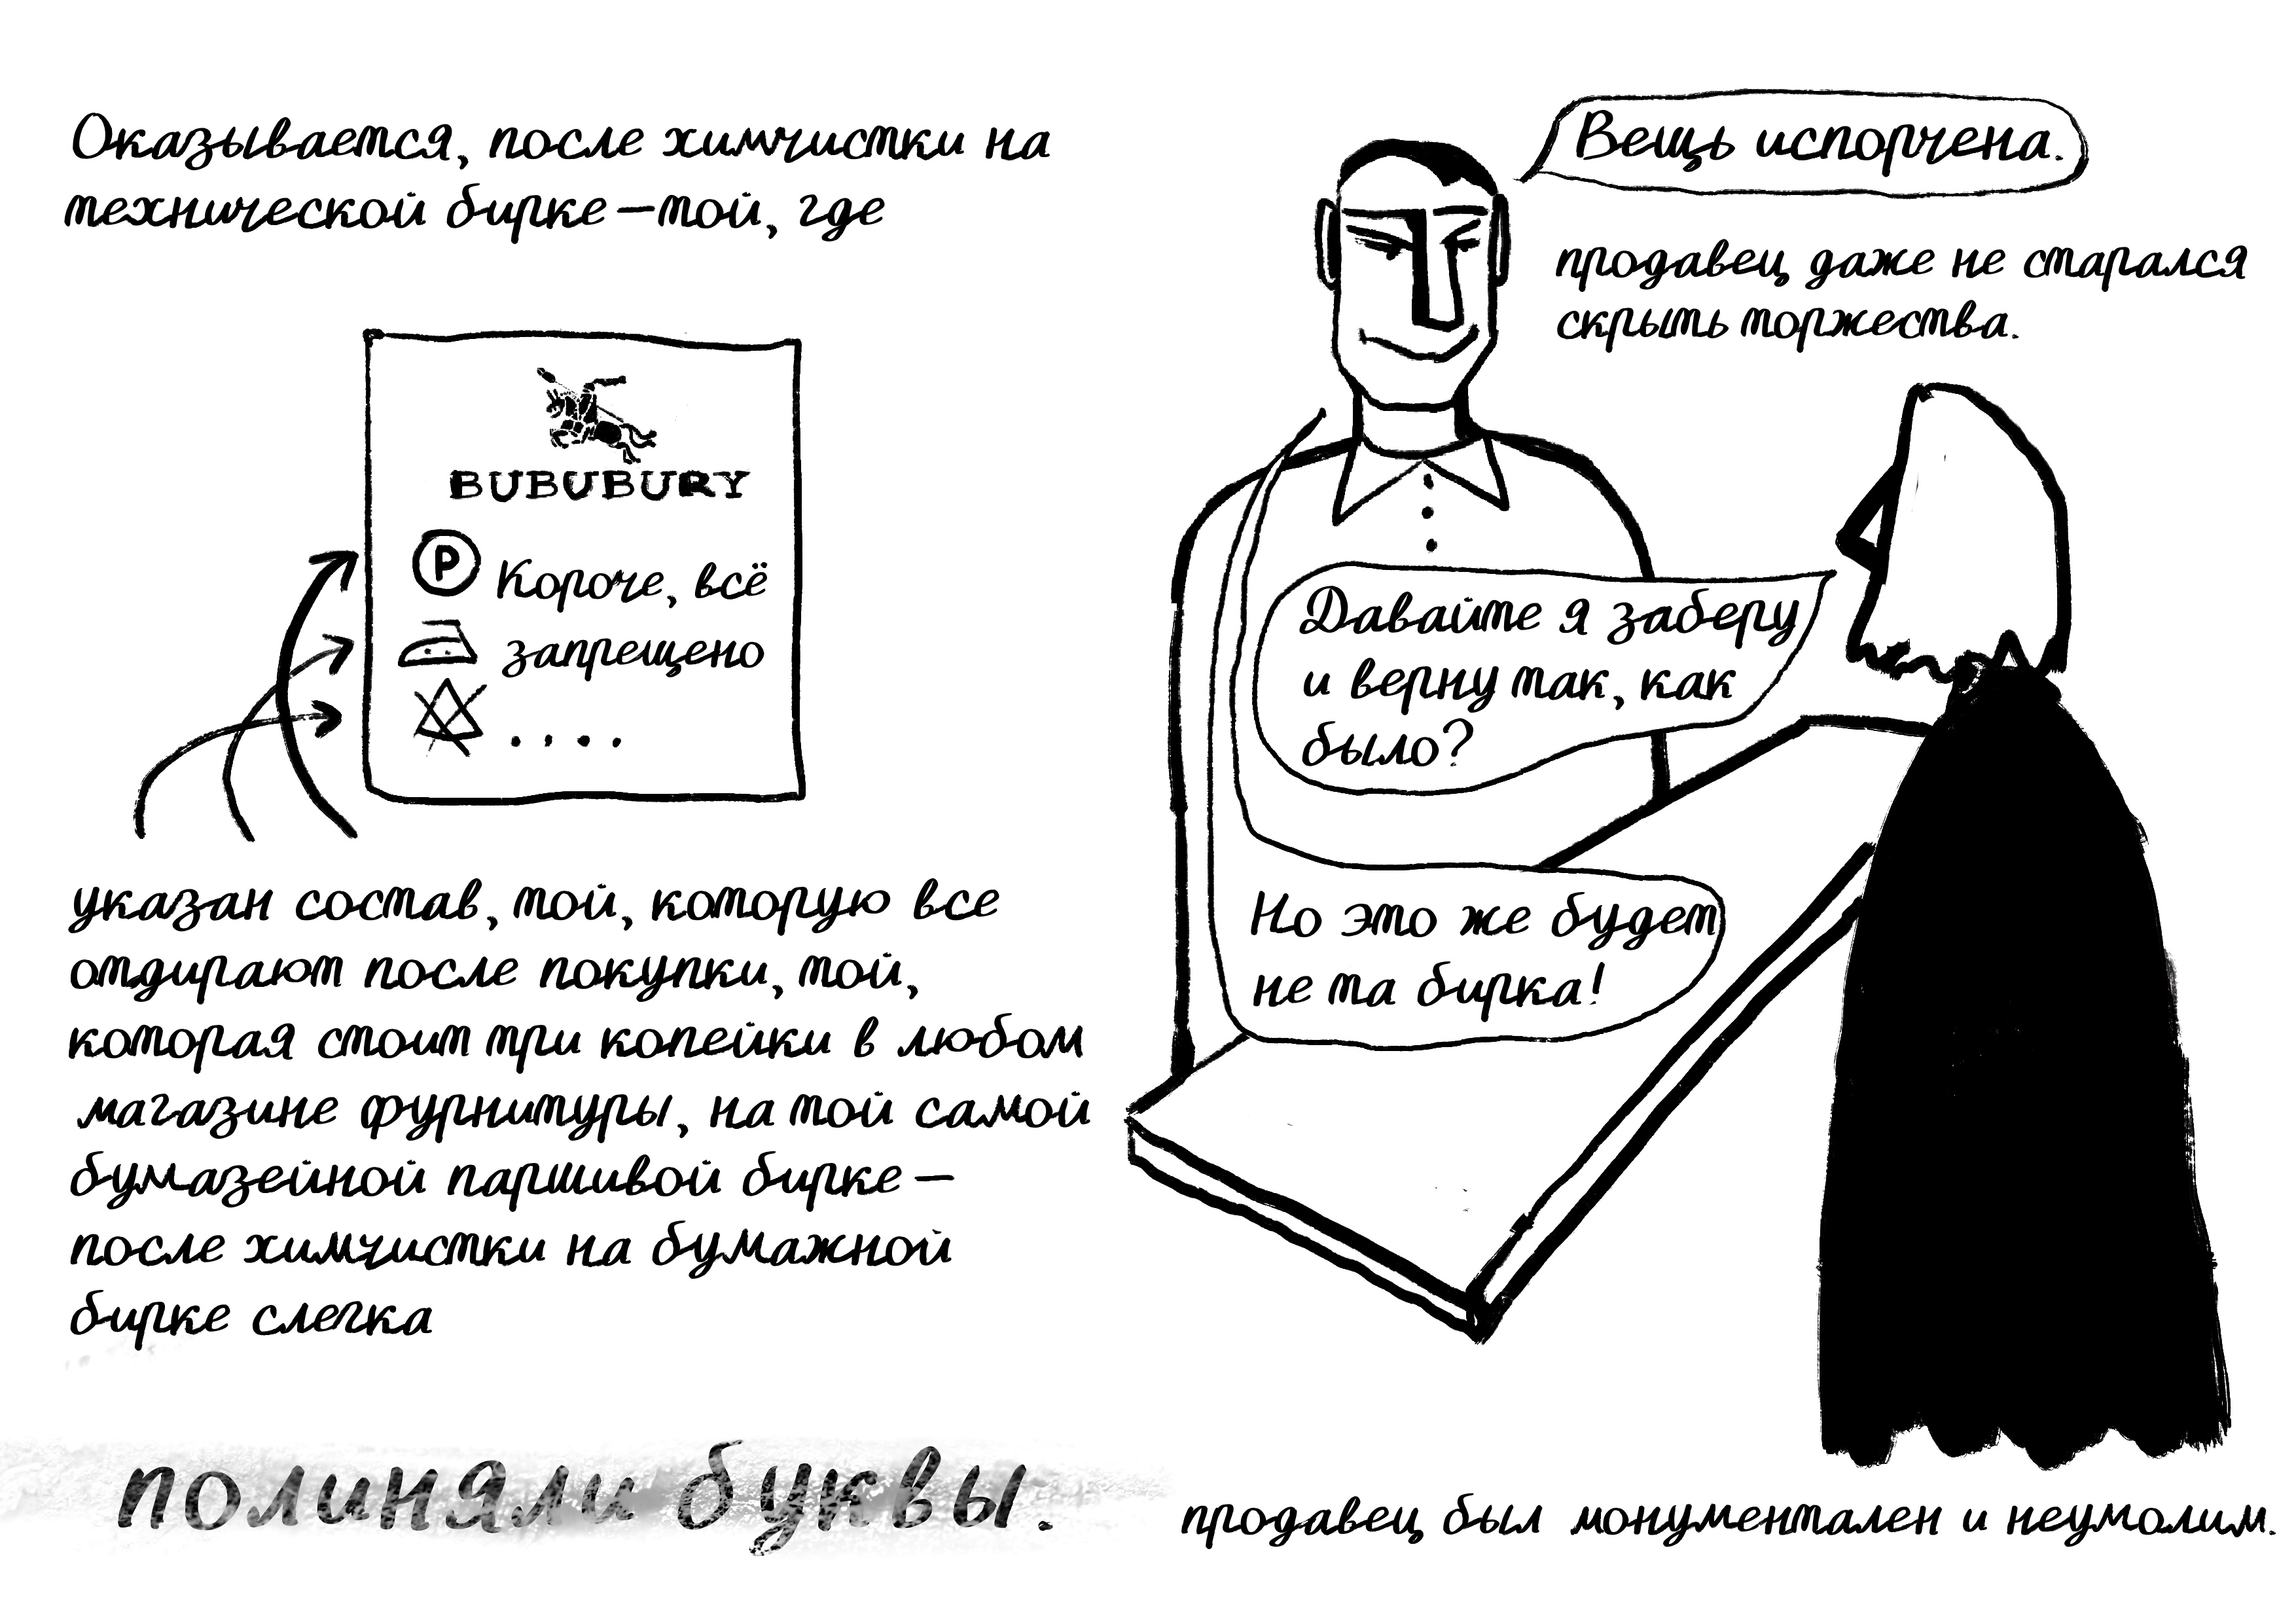 Оказывается, после химчистки на
технической бирке – той, где
BUBUBURY
P Короче, всё
запрещено
....
указан состав, той, которую все
отдирают после покупки, той,
которая стоит три копейки в любом
магазине фурнитуры, на той самой
бумазейной паршивой бирке –
после химчистки на бумажной
бирке слегка
полиняли буквы.
Вещь испорчена.
продавец даже не старался
скрыть торжества.
Давайте я заберу
и верну так, как
было?
Но это же будет
не та бирка!
продавец был монументален и неумолим.